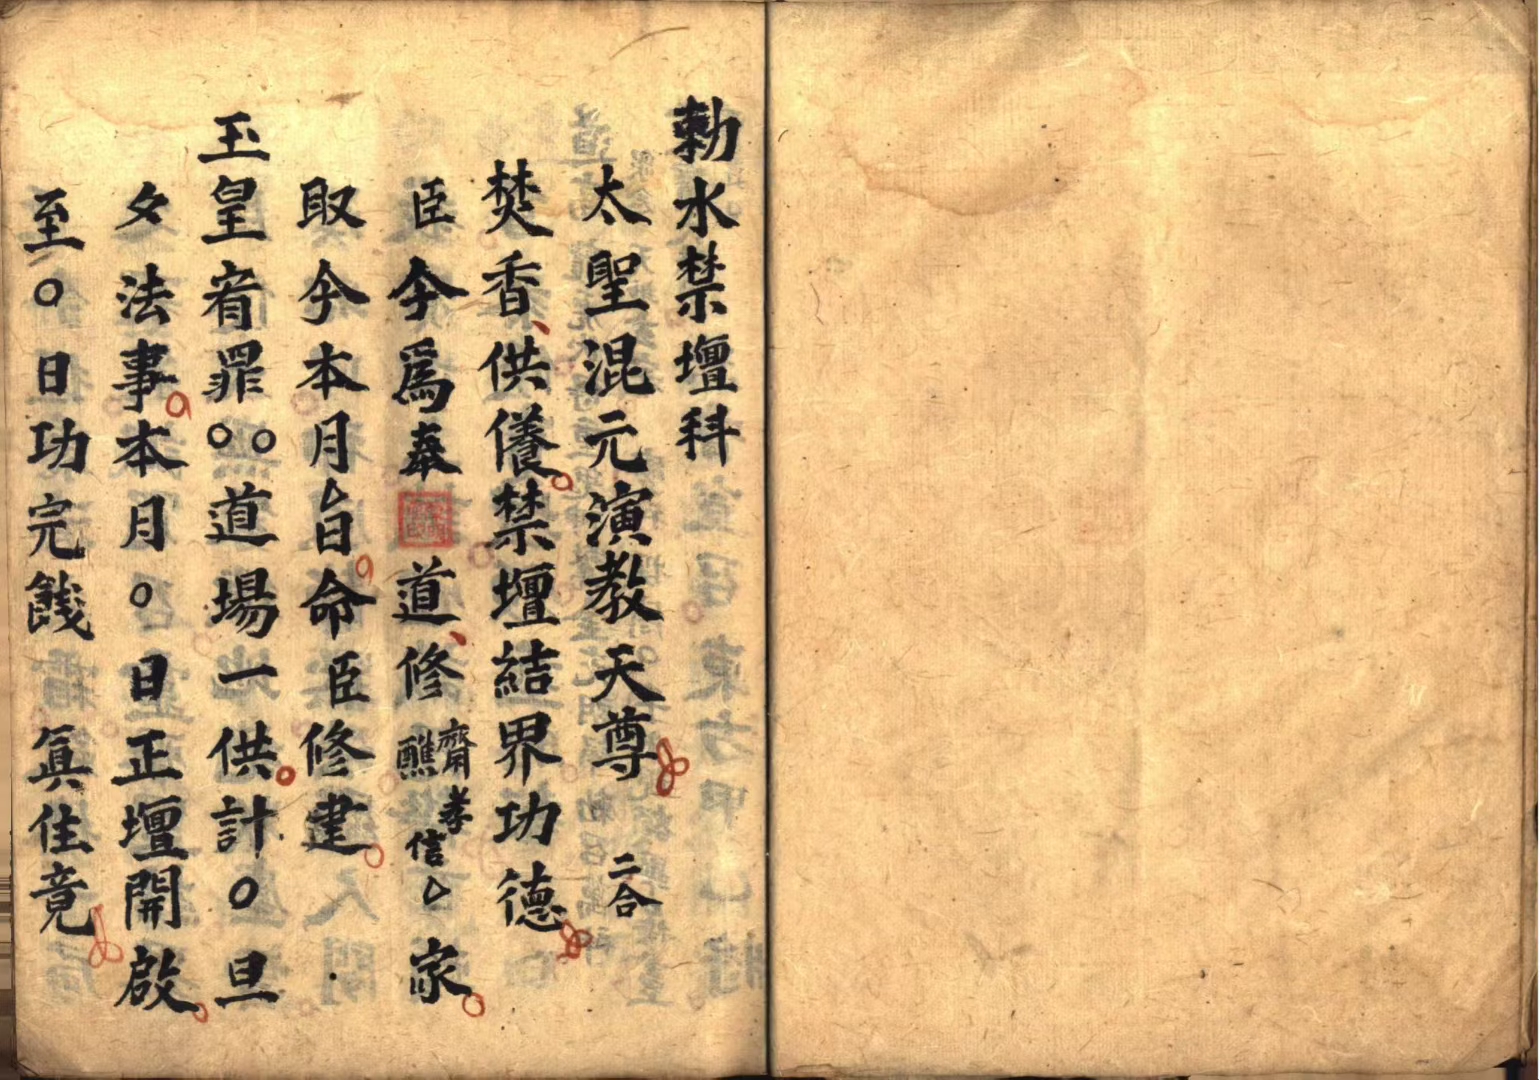 勅水禁壇科
太聖混元演教天尊 二合
焚香供養禁壇結界功德
臣今為奉道修齋醮孝信厶家
取今本月厶日命臣修建
玉皇宥罪〇〇道場一供計〇旦
夕法事本月〇日正壇開啟
至〇日功完餞 眞住竟